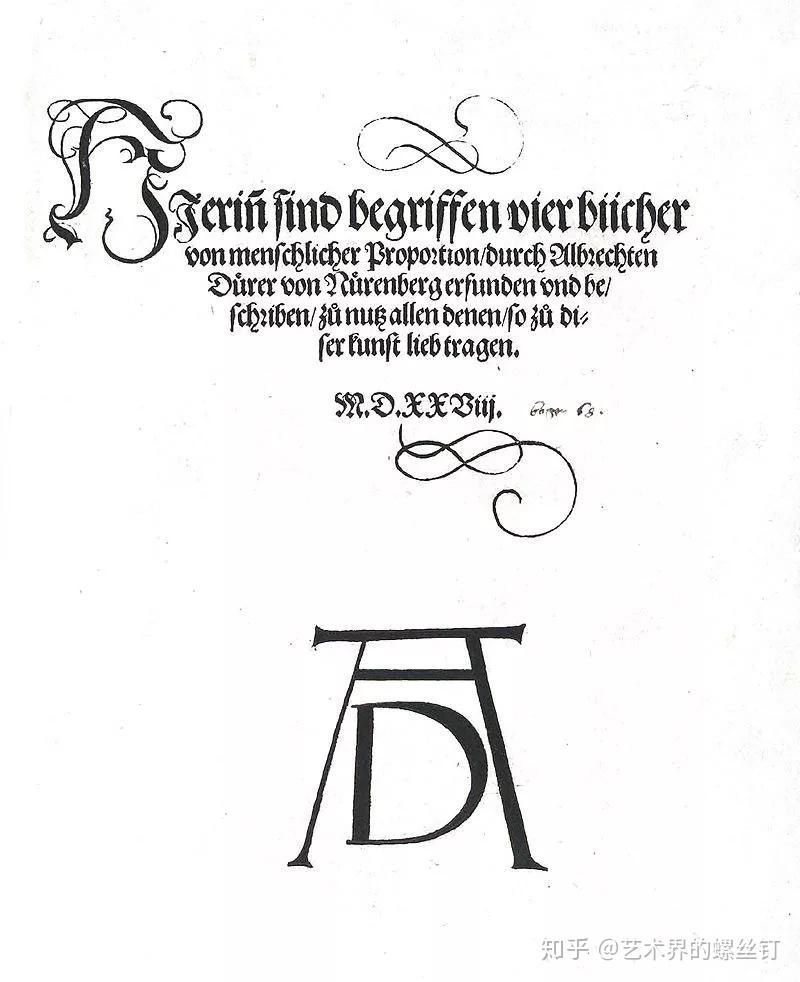 HJeriñ sind begriffen vier bücher
von menschlicher Proportion/durch Albrechten
Dürer von Nürenberg erfunden vnd be/
schriben/zů nutz allen denen/so zů di-
ser kunst lieb tragen.
M.D.XXViij.
AD
知乎 @艺术界的螺丝钉